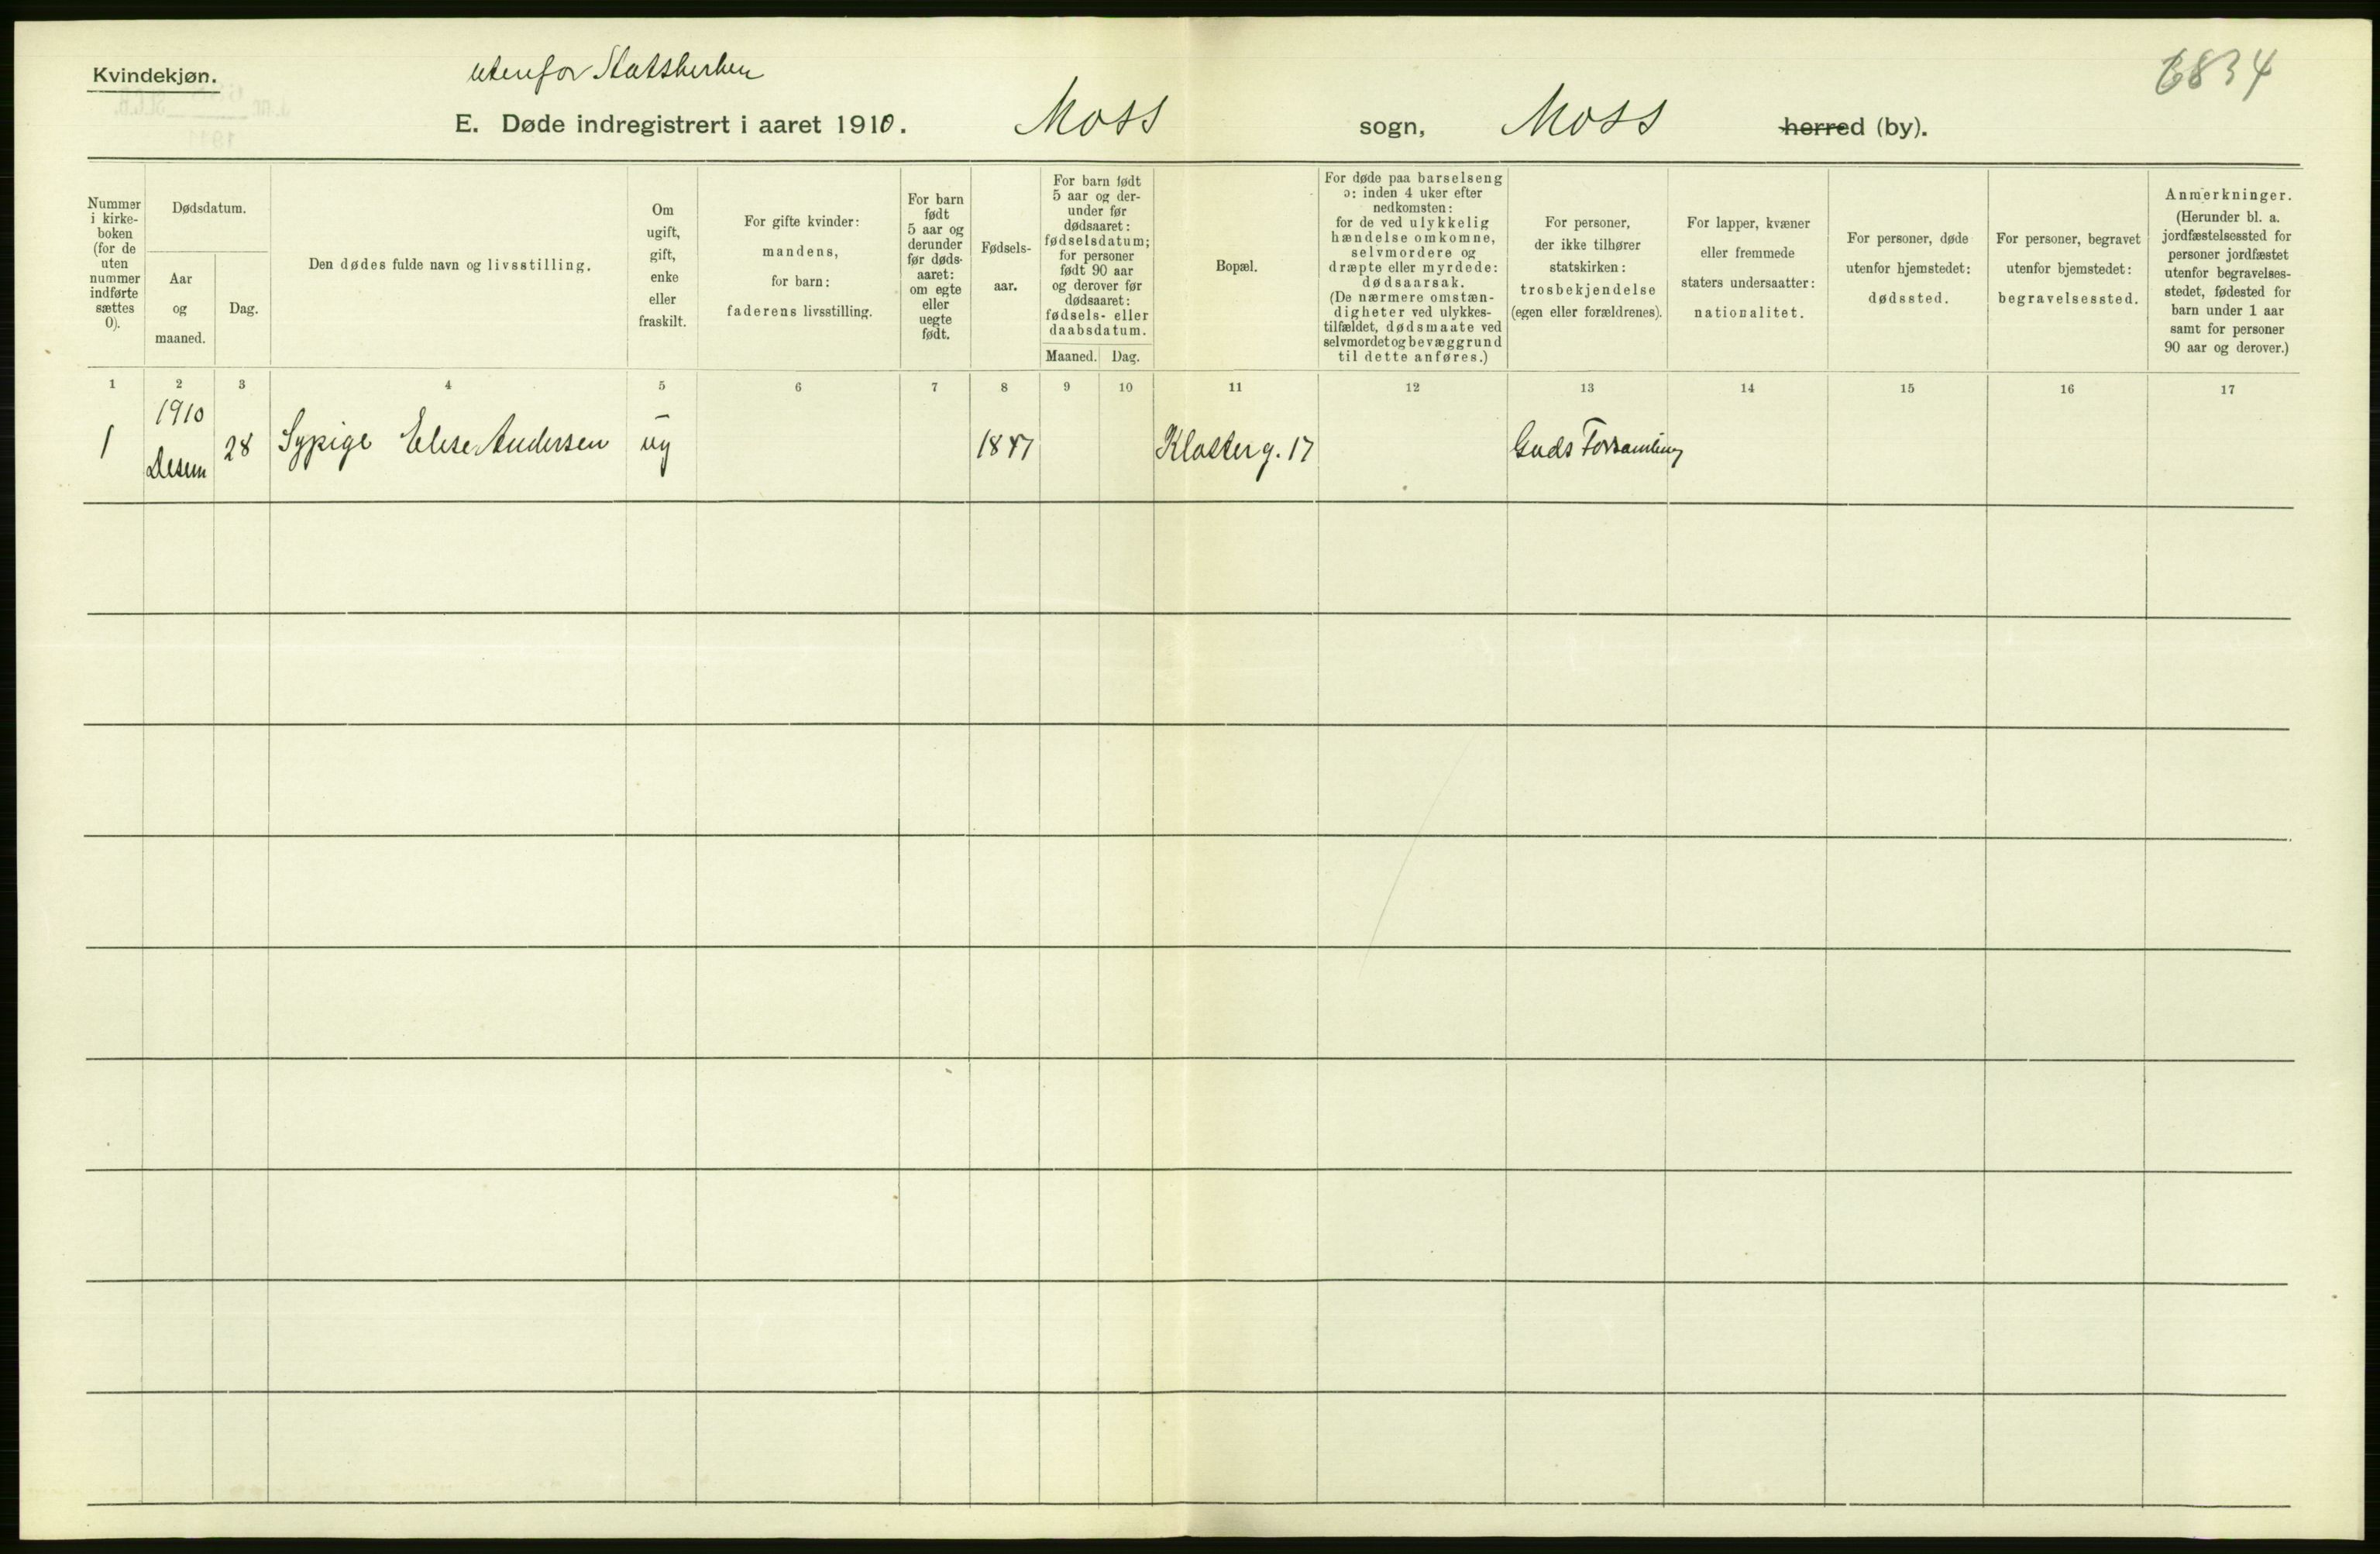 Kvindekjøn.
utenfor Statskirken
6834
E. Døde indregistrert i aaret 1910. Moss sogn, Moss herred (by).
Nummer
i kirke-
boken
(for de
uten
nummer
indførte
sættes
0).
Dødsdatum.
Aar
og
maaned.
Dag.
Den dødes fulde navn og livsstilling.
Om
ugift,
gift,
enke
eller
fraskilt.
For gifte kvinder:
mandens,
for barn:
faderens livsstilling.
For barn
født
5 aar og
derunder
før døds-
aaret:
om egte
eller
uegte
født.
Fødsels-
aar.
For barn født
5 aar og der-
under før
dødsaaret:
fødselsdatum;
for personer
født 90 aar
og derover før
dødsaaret:
fødsels- eller
daabsdatum.
Maaned. Dag.
Bopæl.
For døde paa barselseng
ɔ: inden 4 uker efter
nedkomsten:
for de ved ulykkelig
hændelse omkomne,
selvmordere og
dræpte eller myrdede:
dødsaarsak.
(De nærmere omstæn-
digheter ved ulykkes-
tilfældet, dødsmaate ved
selvmordet og bevæggrund
til dette anføres.)
For personer,
der ikke tilhører
statskirken:
trosbekjendelse
(egen eller forældrenes).
For lapper, kvæner
eller fremmede
staters undersaatter:
nationalitet.
For personer, døde
utenfor hjemstedet:
dødssted.
For personer, begravet
utenfor bjemstedet:
begravelsessted.
Anmerkninger.
(Herunder bl. a.
jordfæstelsessted for
personer jordfæstet
utenfor begravelses-
stedet, fødested for
barn under 1 aar
samt for personer
90 aar og derover.)
1 2 3 4 5 6 7 8 9 10 11 12 13 14 15 16 17
1910
1 Desem 28 Sypige Elise Andersen ug 1847 Kloster g. 17 Guds Forsamling